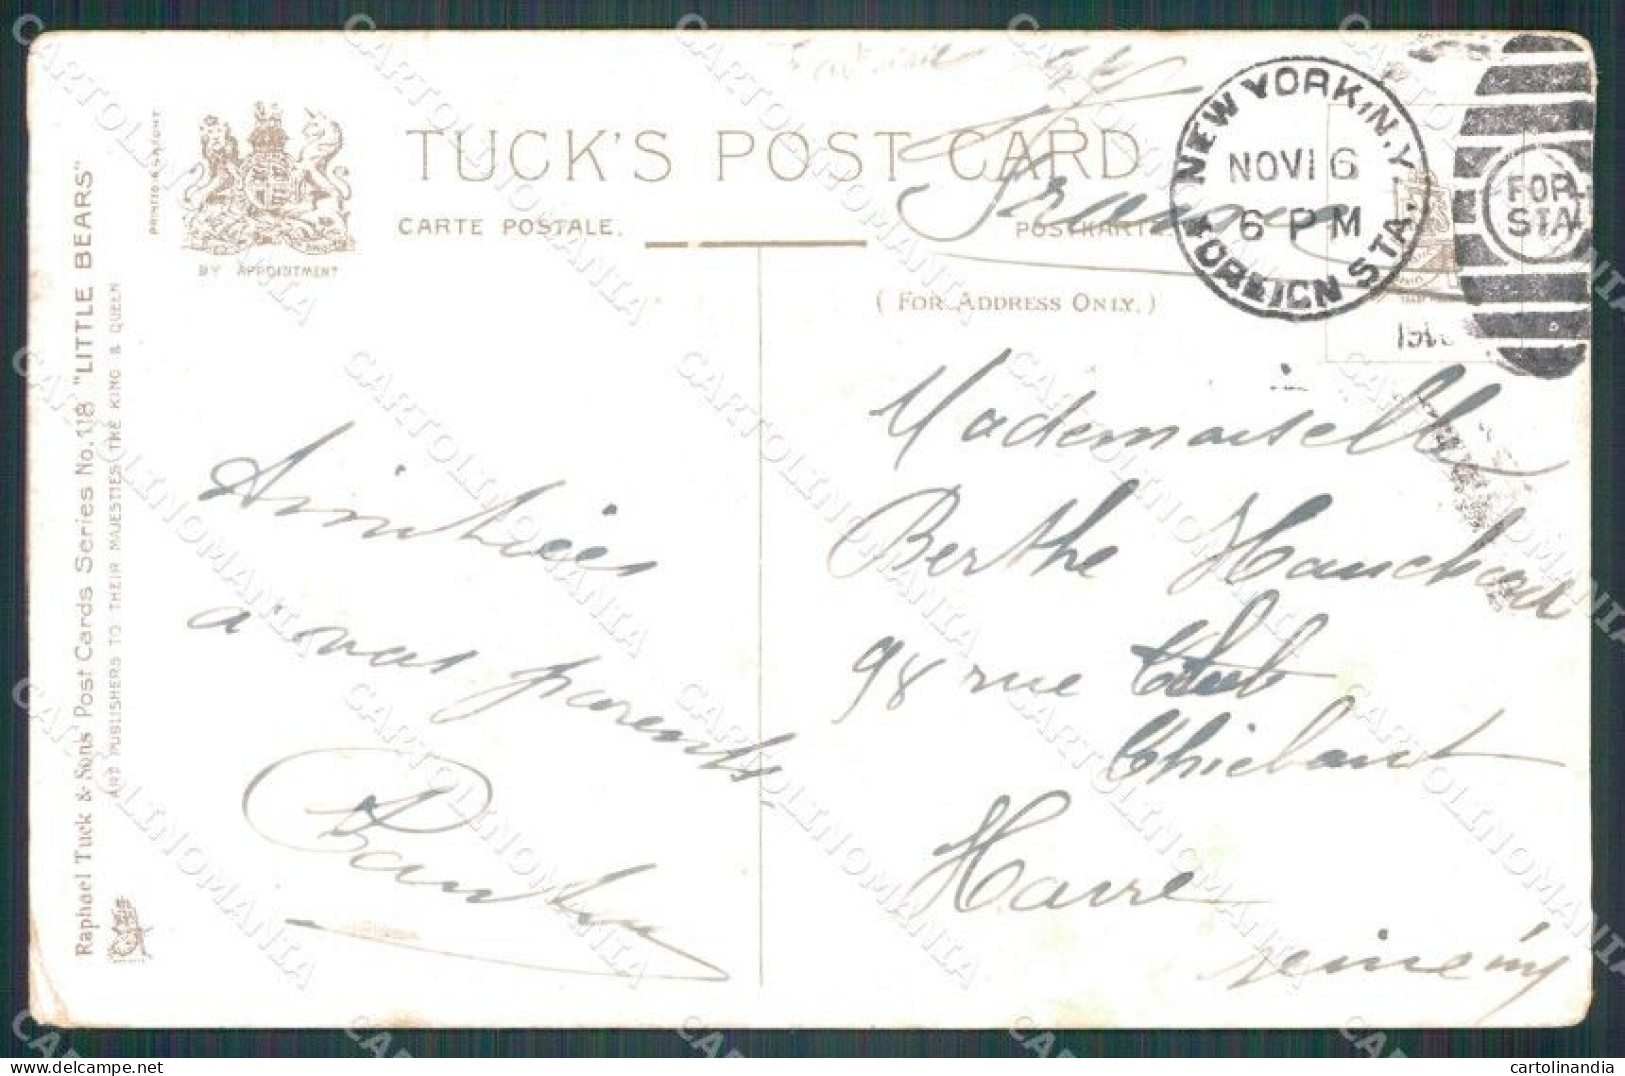 TUCK'S POST CARD
CARTE POSTALE.
POSTKART
(FOR ADDRESS ONLY.)
BY APPOINTMENT
PRINTED IN SAXONY
Raphael Tuck & Sons' Post Cards Series No. 118 "LITTLE BEARS"
ART PUBLISHERS TO THEIR MAJESTIES THE KING & QUEEN
NEW YORK, N.Y.
NOV 16
6 PM
FOREIGN STA.
FOR.
STA
Amitiés
à vos parents
Mademoiselle
Berthe
98 rue
Thiebaut
Havre
CARTOLINOMANIA
cartolinandia